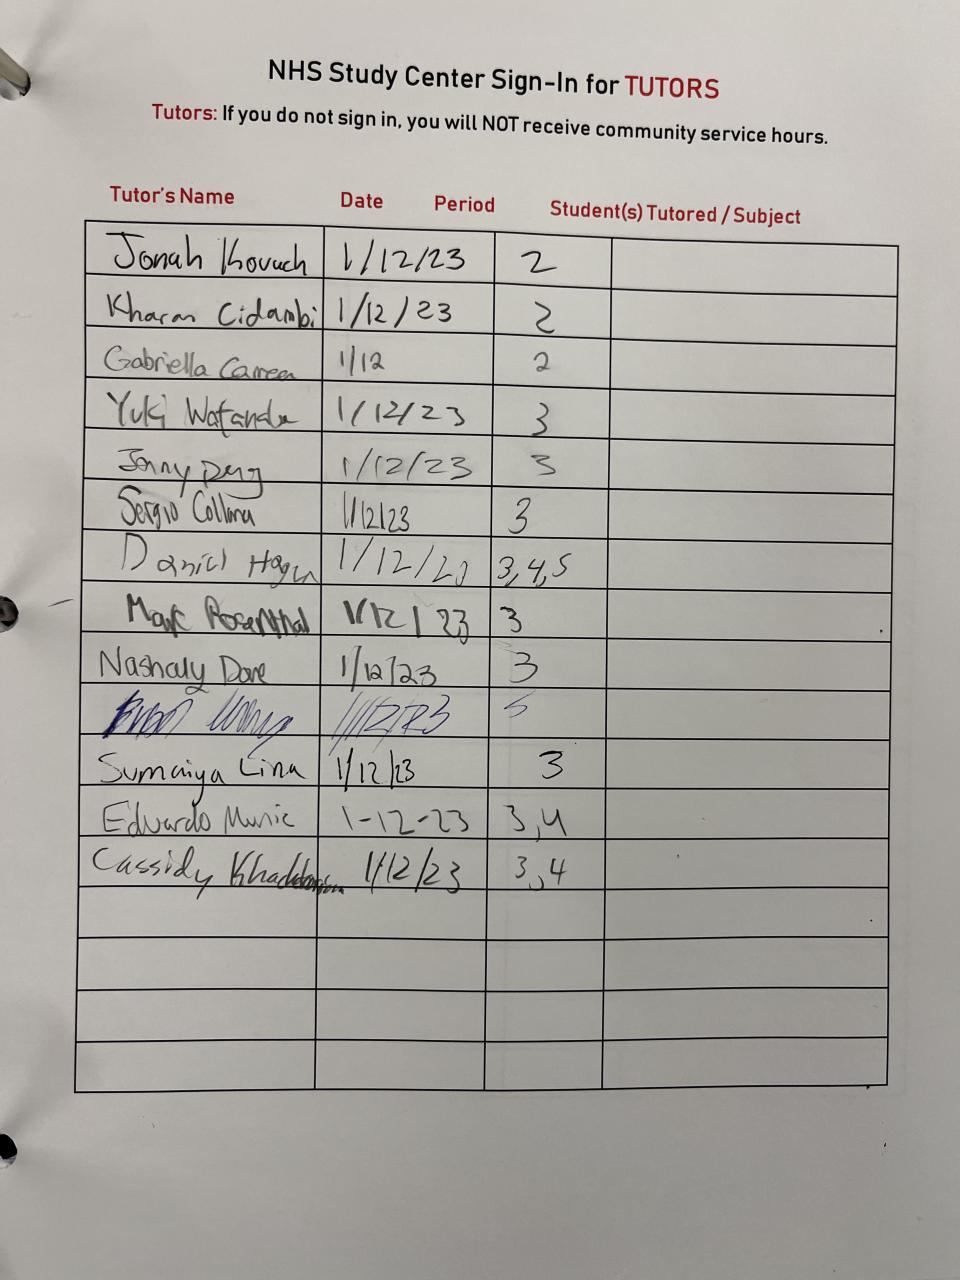 NHS Study Center Sign-In for TUTORS
Tutors: If you do not sign in, you will NOT receive community service hours.
Tutor's Name Date Period Student(s) Tutored / Subject
Jonah Kovach 1/12/23 2
Kharan Cidambi 1/12/23 2
Gabriella 1/12 2
Yuki Watanabe 1/12/23 3
Jenny 1/12/23 3
Sergio 1/12/23 3
Daniel Hagen 1/12/23 3,4,5
Mark Rosenthal 1/12/23 3
Nashaly Dore 1/12/23 3
1/12/23
Sumaiya Lina 1/12/23 3
Eduardo 1-12-23 3,4
Cassidy 1/12/23 3,4